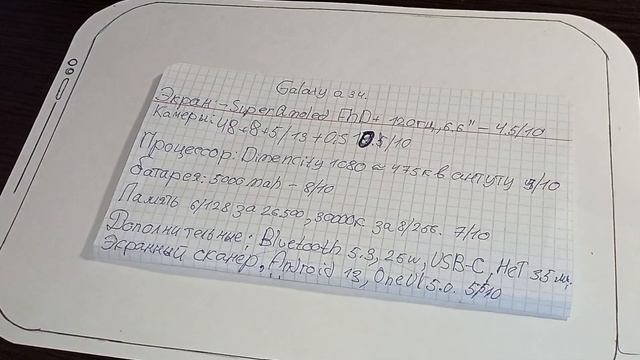 Galaxy a 34.
Экран:-SuperAmoled FhD+ 120гц, 6.6" - 4,5/10
Камеры: 48+8+5/13+0,5 /10
Процессор: Dimencity 1080 ≈ 475к в антуту 9/10
батарея: 5000 mah - 8/10
Память 6/128 за 26500, 30000к за 8/256. 7/10
Дополнительные: Bluetooth 5.3, 26w, USB-C, Нет 3.5 мм,
Экранный сканер, Android 13, OneUI 5.0. 5/10